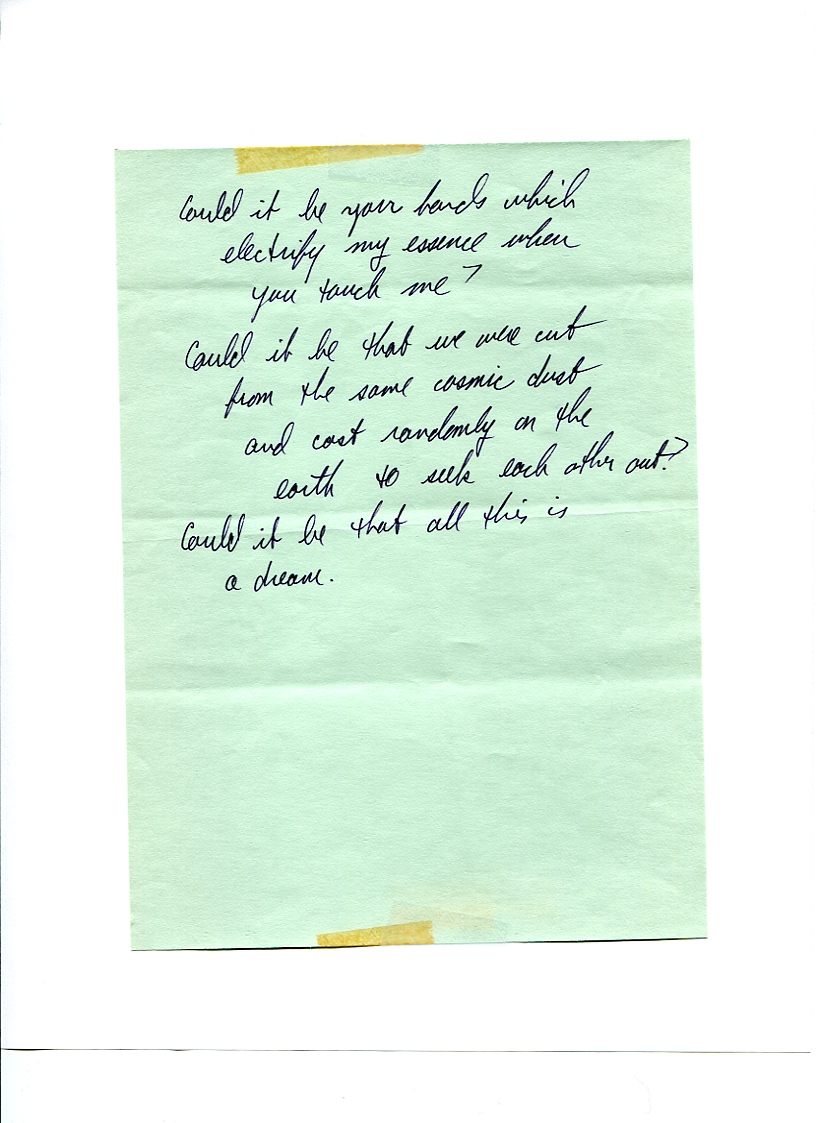 Could it be your hands which
electrify my essence when
you touch me?
Could it be that we were cut
from the same cosmic dust
and cast randomly on the
earth to seek each other out?
Could it be that all this is
a dream.